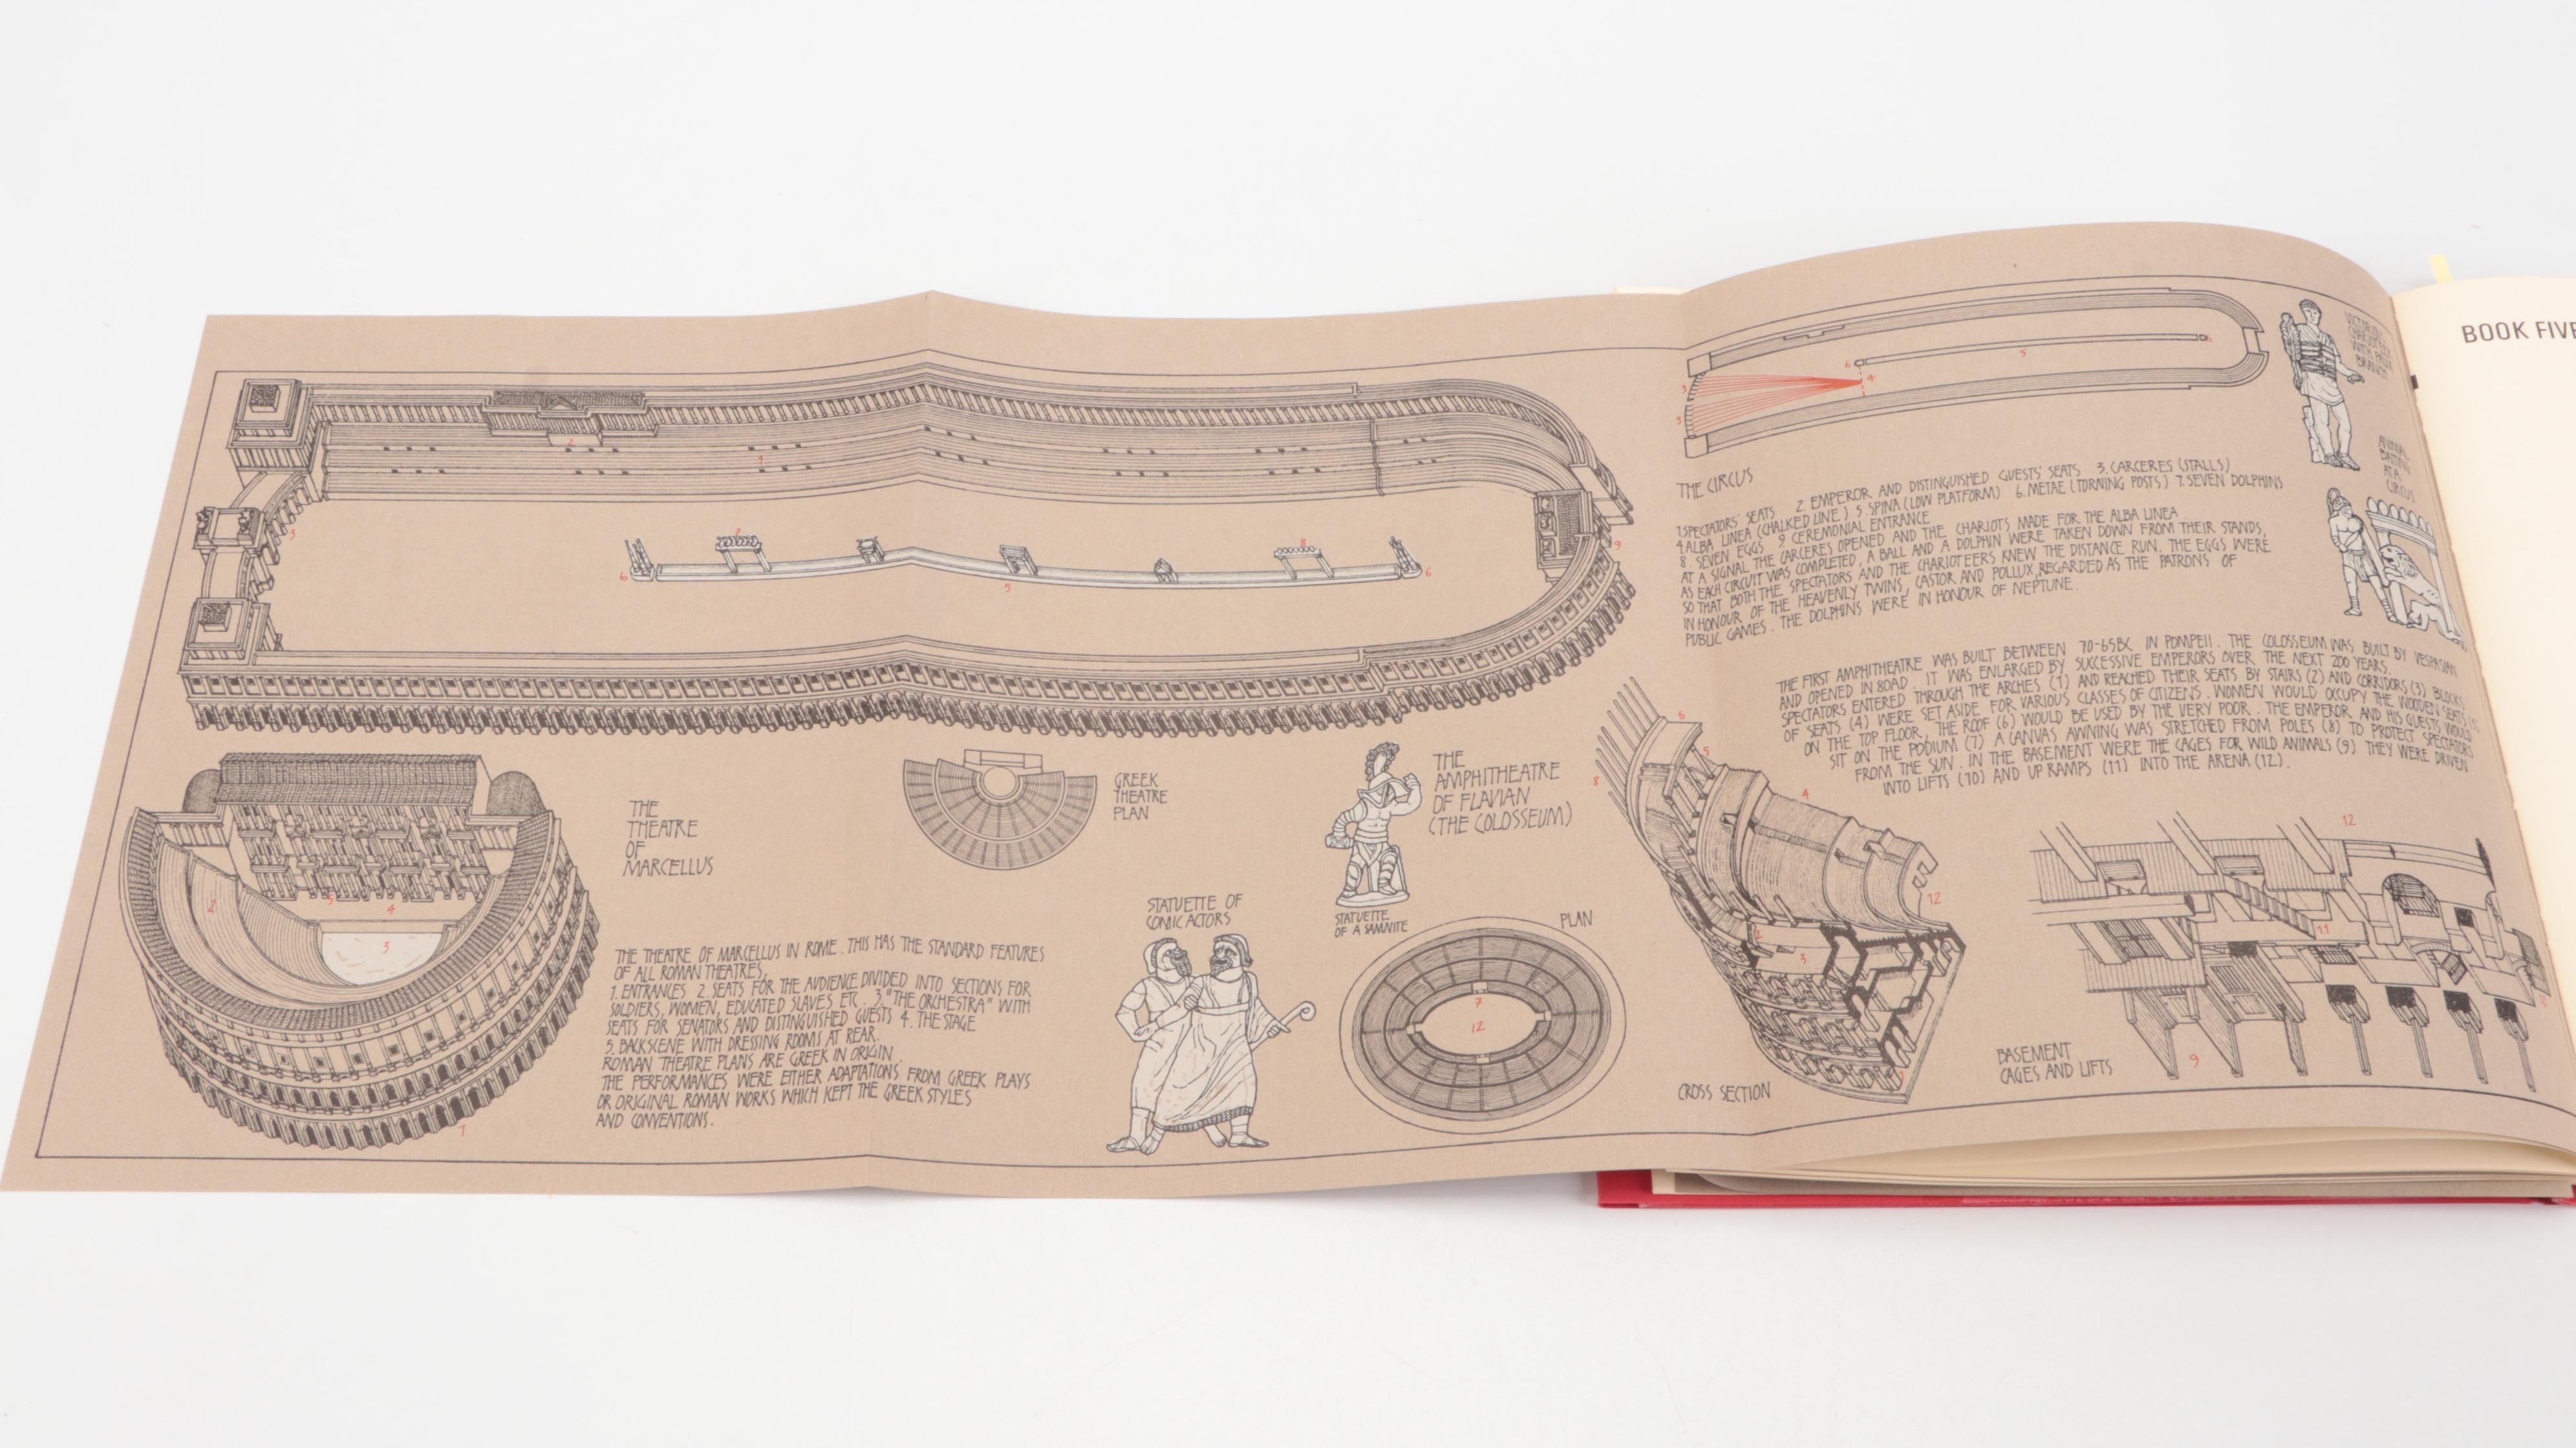 BOOK FIVE
THE CIRCUS
1 SPECTATORS' SEATS 2. EMPEROR AND DISTINGUISHED GUESTS' SEATS 3. CARCERES (STALLS)
4 ALBA LINEA (CHALKED LINE) 5 SPINA (LOW PLATFORM) 6. METAE (TURNING POSTS) 7. SEVEN DOLPHINS
8. SEVEN EGGS 9 CEREMONIAL ENTRANCE
AT A SIGNAL THE CARCERES OPENED AND THE CHARIOTS MADE FOR THE ALBA LINEA.
AS EACH CIRCUIT WAS COMPLETED, A BALL AND A DOLPHIN WERE TAKEN DOWN FROM THEIR STANDS,
SO THAT BOTH THE SPECTATORS AND THE CHARIOTEERS KNEW THE DISTANCE RUN. THE EGGS WERE
IN HONOUR OF THE HEAVENLY TWINS, CASTOR AND POLLUX, REGARDED AS THE PATRONS OF
PUBLIC GAMES. THE DOLPHINS WERE IN HONOUR OF NEPTUNE.
VICTORIOUS
CHARIOTEER
WITH PALM
BRANCH
ANIMAL
BAITING
AT A
CIRCUS
THE FIRST AMPHITHEATRE WAS BUILT BETWEEN 70-65BC IN POMPEII. THE COLOSSEUM WAS BUILT BY VESPASIAN
AND OPENED IN 80AD. IT WAS ENLARGED BY SUCCESSIVE EMPERORS OVER THE NEXT 200 YEARS.
SPECTATORS ENTERED THROUGH THE ARCHES (1) AND REACHED THEIR SEATS BY STAIRS (2) AND CORRIDORS (3) BLOCKS
OF SEATS (4) WERE SET ASIDE FOR VARIOUS CLASSES OF CITIZENS. WOMEN WOULD OCCUPY THE WOODEN SEATS (5)
ON THE TOP FLOOR, THE ROOF (6) WOULD BE USED BY THE VERY POOR. THE EMPEROR AND HIS GUESTS WOULD
SIT ON THE PODIUM (7) A CANVAS AWNING WAS STRETCHED FROM POLES (8) TO PROTECT SPECTATORS
FROM THE SUN. IN THE BASEMENT WERE THE CAGES FOR WILD ANIMALS (9) THEY WERE DRIVEN
INTO LIFTS (10) AND UP RAMPS (11) INTO THE ARENA (12).
THE
THEATRE
OF
MARCELLUS
GREEK
THEATRE
PLAN
THE
AMPHITHEATRE
OF FLAVIAN
(THE COLOSSEUM)
STATUETTE OF
COMIC ACTORS
STATUETTE
OF A SAMNITE
PLAN
THE THEATRE OF MARCELLUS IN ROME. THIS HAS THE STANDARD FEATURES
OF ALL ROMAN THEATRES,
1. ENTRANCES 2. SEATS FOR THE AUDIENCE DIVIDED INTO SECTIONS FOR
SOLDIERS, WOMEN, EDUCATED SLAVES ETC. 3. "THE ORCHESTRA" WITH
SEATS FOR SENATORS AND DISTINGUISHED GUESTS 4. THE STAGE
5. BACKSCENE WITH DRESSING ROOMS AT REAR.
ROMAN THEATRE PLANS ARE GREEK IN ORIGIN.
THE PERFORMANCES WERE EITHER ADAPTATIONS FROM GREEK PLAYS
OR ORIGINAL ROMAN WORKS WHICH KEPT THE GREEK STYLES
AND CONVENTIONS.
CROSS SECTION
BASEMENT
CAGES AND LIFTS